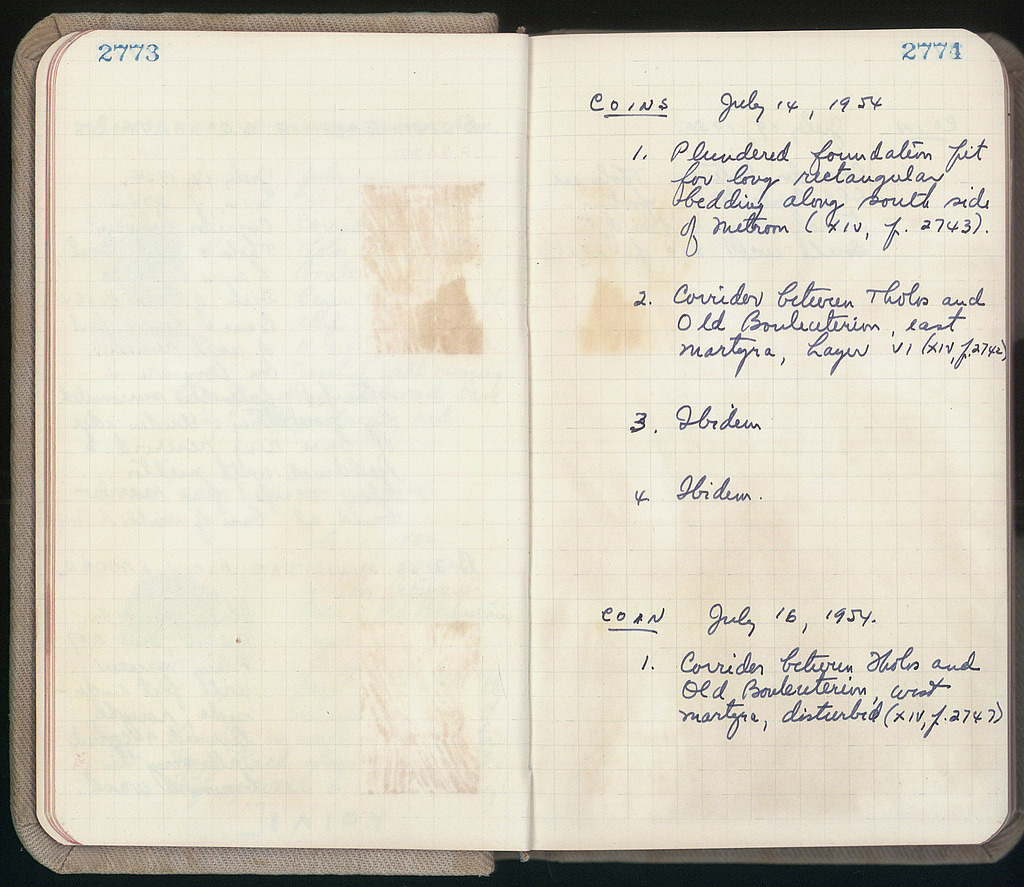 2773
2774
COINS July 14, 1954
1. Plundered foundation pit
for long rectangular
bedding along south side
of Metroon (XIV, p. 2743).
2. Corridor between Tholos and
Old Bouleuterion, east
martyra, Layer VI (XIV, p. 2742)
3. Ibidem
4 Ibidem.
COIN July 16, 1954.
1. Corridor between Tholos and
Old Bouleuterion, west
martyra, disturbed (XIV, p. 2747)